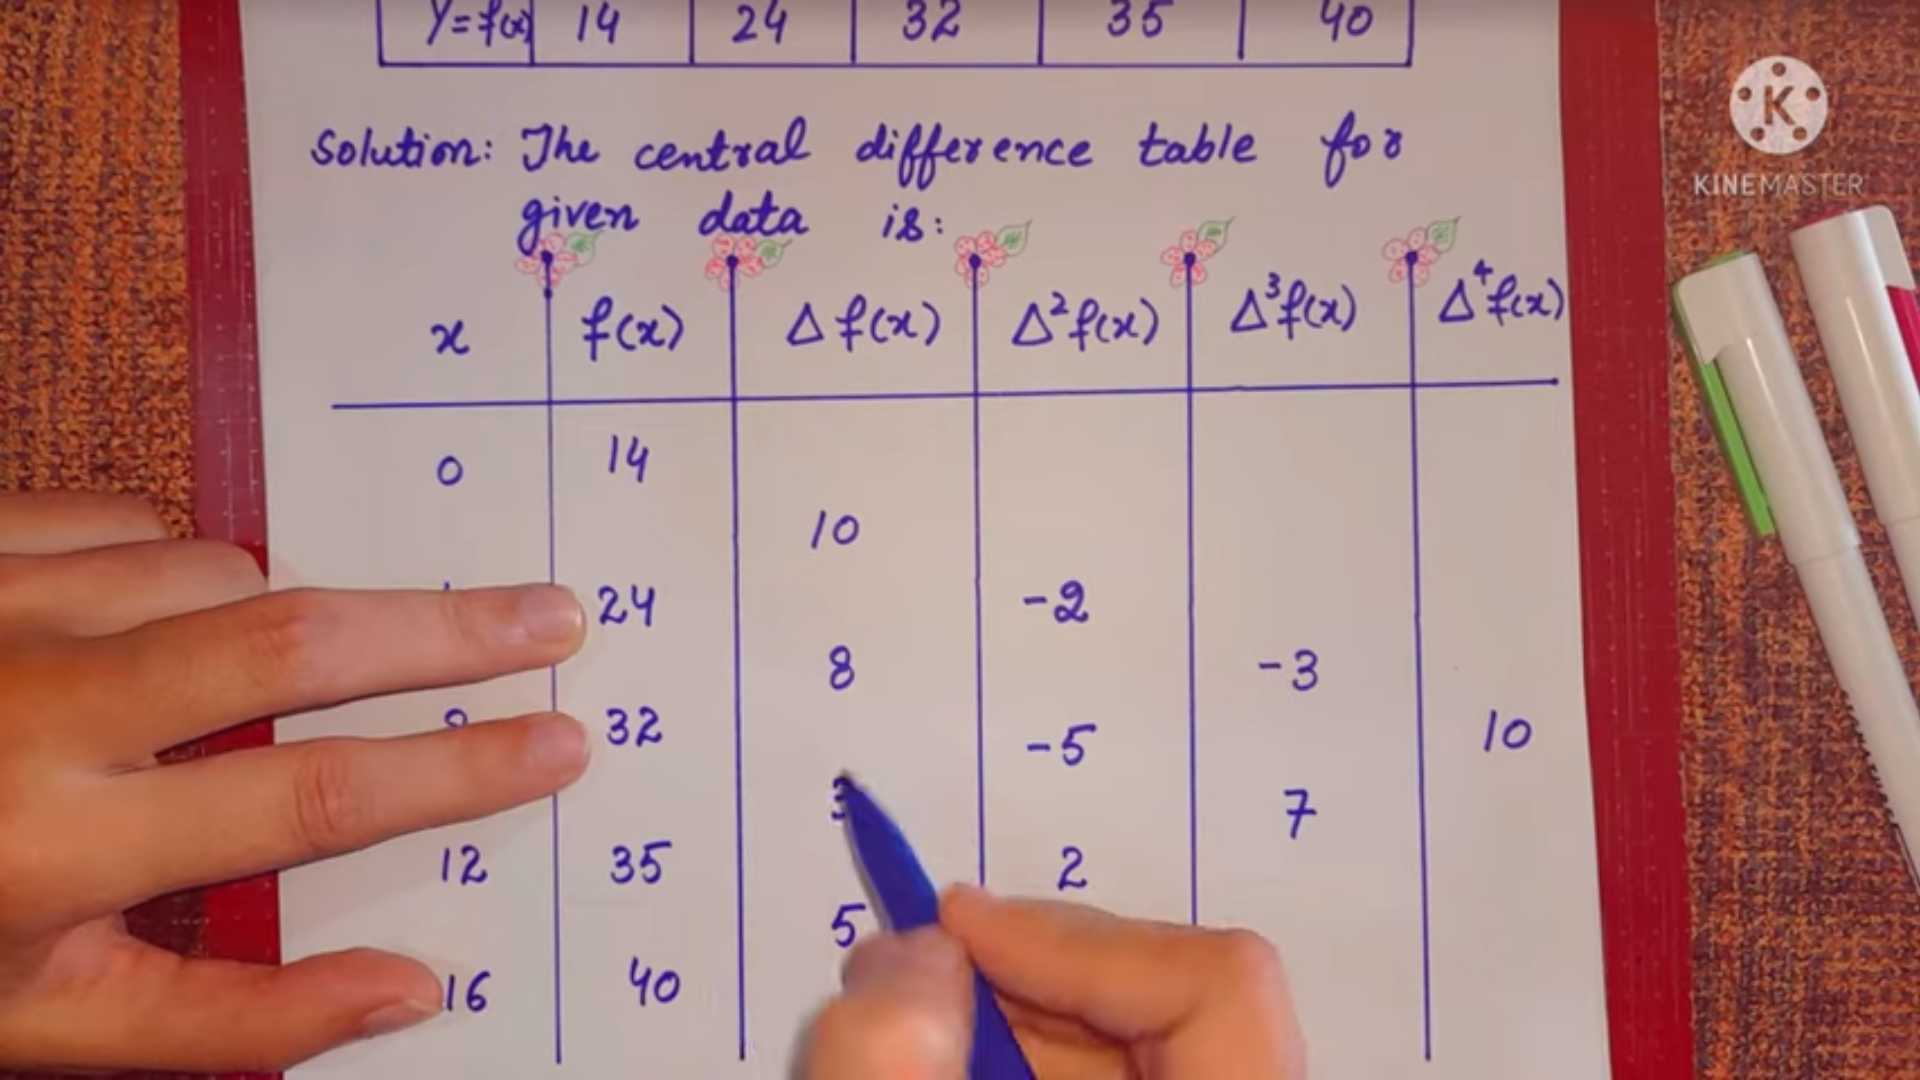 Y=f(x) 14 24 32 35 40
KINEMASTER
Solution: The central difference table for
given data is:
x f(x) Δf(x) Δ²f(x) Δ³f(x) Δ⁴f(x)
0 14
10
24 -2
8 -3
32 -5 10
3 7
12 35 2
5
16 40